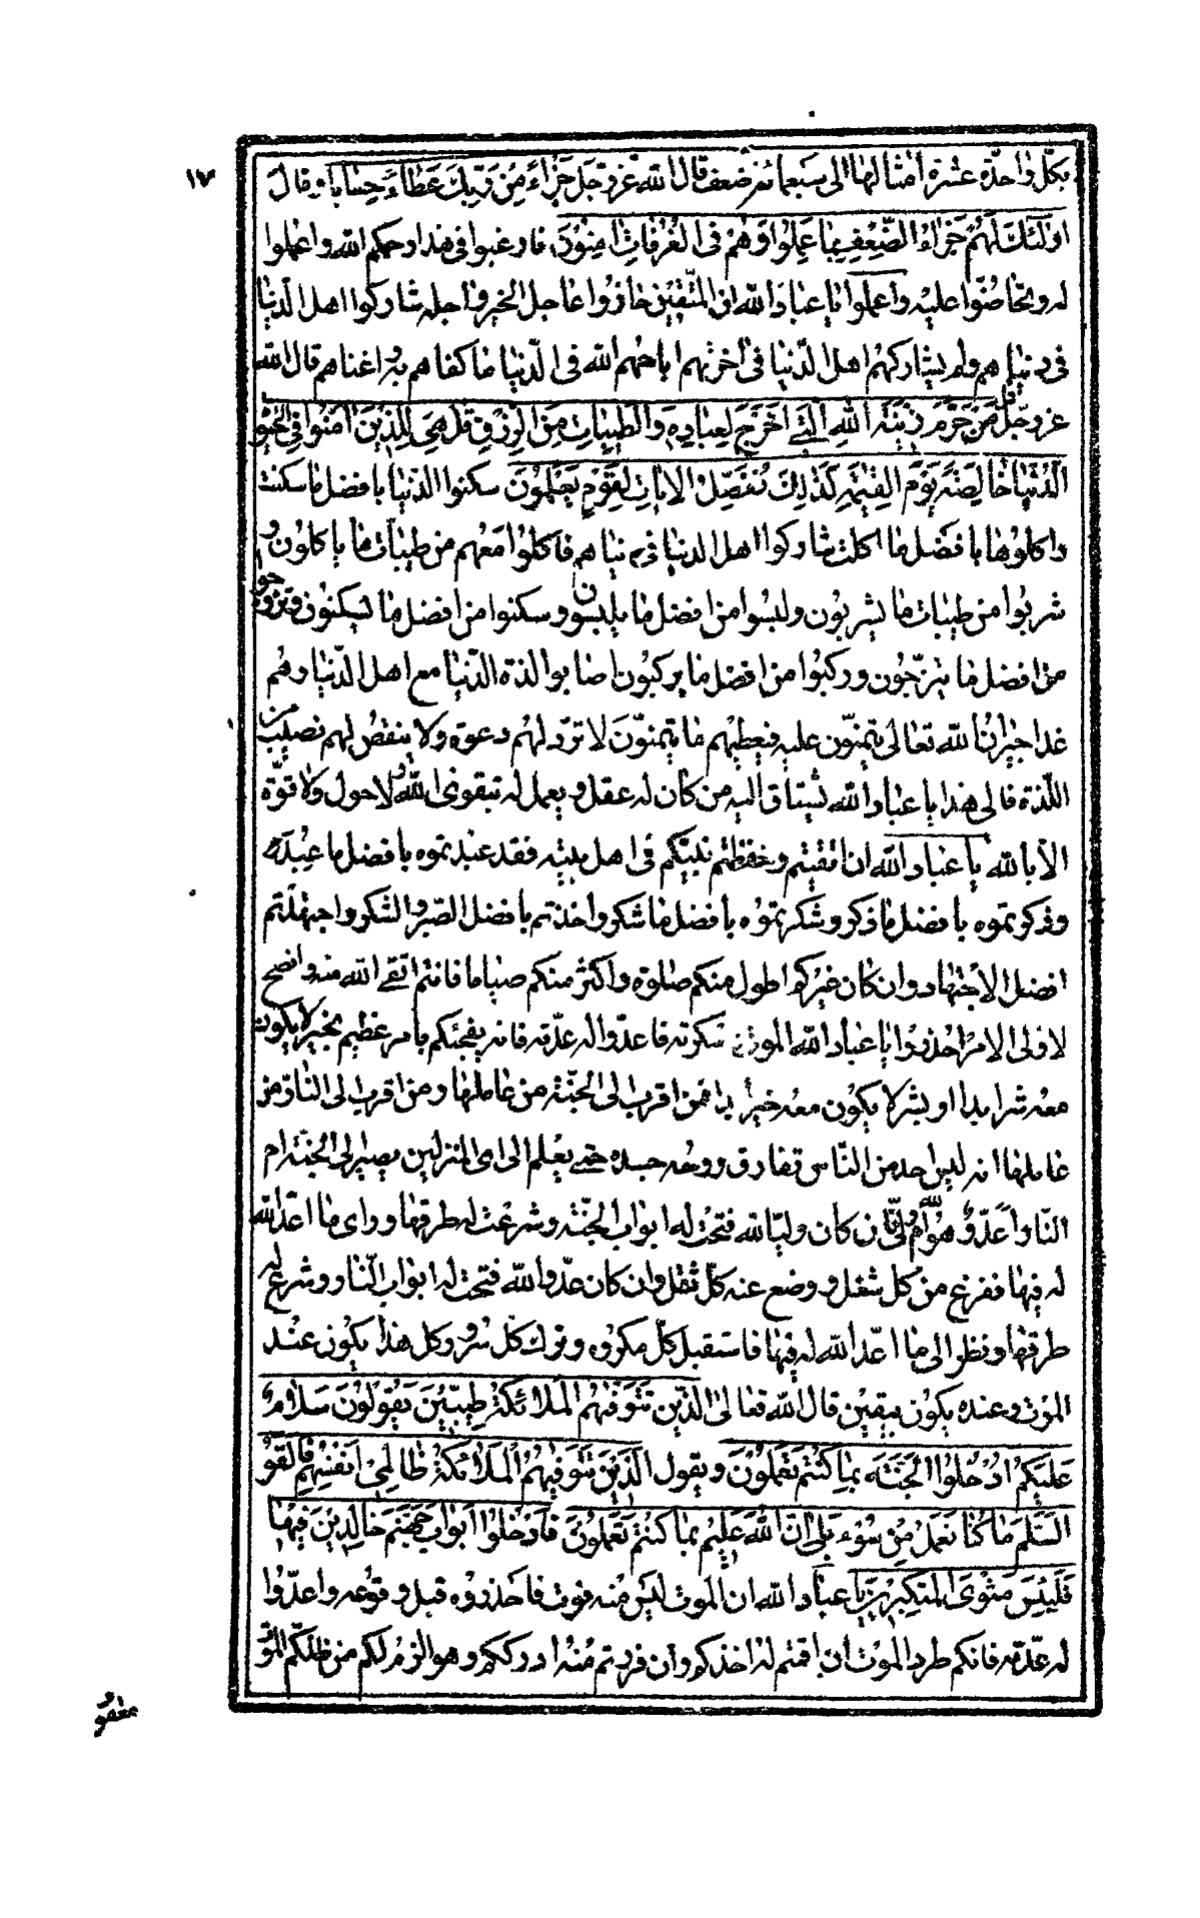 ١٧
بكلّ واحدة عشرة امثالها الى سبعمائة ضعف قال الله عزّوجلّ جَزٰاءً مِنْ رَبِّكَ عَطٰاءً حِسٰاباً وقال
اولٰئِكَ لَهُمْ جَزٰاءُ الضِّعْفِ بِمٰا عَمِلُوا وَهُمْ فِى الغُرُفٰاتِ اٰمِنُونَ فارغبوا فى هذا رحمكم الله واعملوا
له وتحاضّوا عليه واعلموا يا عباد الله انّ المتّقين حازوا عاجل الخير واجله شاركوا اهل الدّنيا
فى دنياهم ولم يشاركهم اهل الدّنيا فى اخرتهم اباحهم الله فى الدّنيا ما كفاهم به واغناهم قال الله
عزّوجلّ قل مَنْ حَرَّمَ زِينَةَ اللهِ الَّتى اَخْرَجَ لِعِبٰادِهِ وَالطَّيِّبٰاتِ مِنَ الرِّزْقِ قُلْ هِىَ لِلَّذِينَ اٰمَنُوا فِى الحَيٰوةِ
الدُّنْيٰا خٰالِصَةً يَوْمَ القِيٰمَةِ كَذٰلِكَ نُفَصِّلُ الاٰيٰاتِ لِقَوْمٍ يَعْلَمُونَ سكنوا الدّنيا بافضل ما سكنت
واكلوها بافضل ما اكلت شاركوا اهل الدنيا فى دنياهم فاكلوا معهم من طيبات ما ياكلون و
شربوا من طيبات ما يشربون ولبسوا من افضل ما يلبسون وسكنوا من افضل ما يسكنون وتزوجوا
من افضل ما يتزوّجون وركبوا من افضل ما يركبون اصابوا لذة الدّنيا مع اهل الدّنيا وهم
غدا جيران الله تعالى يتمنّون عليه فيعطيهم ما يتمنّون لا تردّ لهم دعوة ولا ينقص لهم نصيب من
اللّذة فالى هذا يا عباد الله يشتاق اليه من كان له عقل ويعمل له بتقوى الله ولا حول ولا قوّة
الّا بالله يا عباد الله ان اتقيتم وحفظتم نبيّكم فى اهل بيته فقد عبدتموه بافضل ما عبد
وذكرتموه بافضل ما ذكر وشكرتموه بافضل ما شكر واخذتم بافضل الصّبر والشكر واجتهدتم
افضل الاجتهاد وان كان غيركم اطول منكم صلوة واكثر منكم صياما فانتم اتقى الله منه وانصح
لاولى الامر احذروا يا عباد الله الموت سكرته فاعدّوا له عدّته فانه يفجئكم بامر عظيم بخير لا يكون
معه شر ابدا او بشر لا يكون معه خير ابدا فمن اقرب الى الجنّة من عاملها ومن اقرب الى النار من
عاملها انه ليس احد من النّاس تفارق روحه جسده حتى يعلم الى اى المنزلين يصير الى الجنّة ام
النار اعدوّ هو لله ام ولىّ فان كان وليا لله فتحت له ابواب الجنّة وشرعت له طرقها وراى ما اعدّ الله
له فيها ففرغ من كل شغل ووضع عنه كلّ ثقل وان كان عدّوا لله فتحت له ابواب النّار وشرع له
طرقها ونظر الى ما اعدّ الله له فيها فاستقبل كلّ مكروه وترك كلّ سرور وكل هذا يكون عند
الموت وعنده يكون بيقين قال الله تعالى الذين تَتَوَفّٰهُمُ المَلٰائِكَةُ طَيِّبِينَ يَقُولُونَ سَلٰامٌ
عَلَيْكُمْ ادْخُلُوا الجَنَّةَ بِمٰا كُنْتُمْ تَعْمَلُونَ ويقول الَّذِينَ تَتَوَفّٰيهُمُ المَلٰائِكَةُ ظٰالِمِى اَنْفُسِهِمْ فَاَلْقَوُ
السَّلَمَ مٰا كُنّٰا نَعْمَلُ مِنْ سُوْءٍ بَلٰى اِنَّ اللهَ عَلِيمٌ بِمٰا كُنْتُمْ تَعْمَلُونَ فَادْخُلُوا اَبْوٰابَ جَهَنَّمَ خٰالِدِينَ فِيهٰا
فَلَبِئْسَ مَثْوَى المُتَكَبِّرِينَ يا عباد الله انّ الموت ليس منه فوت فاحذروه قبل وقوعه واعدّوا
له عدّته فانكم طرد الموت ان اقمتم له اخذكم وان فررتم منه ادرككم وهو الزم لكم من ظلّكم الموت
معقود